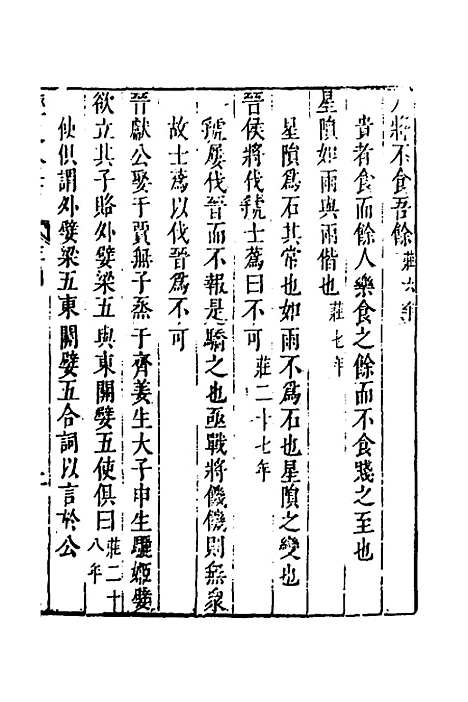 人將不食吾餘莊六年
貴者食而餘人樂食之餘而不食賤之至也
星隕如雨與雨偕也莊七年
星隕爲石其常也如雨不爲石也星隕之變也
晉侯將伐虢士蒍曰不可莊二十七年
虢屢伐晉而不報是驕之也亟戰將饑饑則無衆
故士蒍以伐晉爲不可
晉獻公娶于賈無子烝于齊姜生大子申生驪姬嬖
欲立其子賂外嬖梁五與東關嬖五使俱曰莊二十八年
使俱謂外嬖梁五東關嬖五合詞以言於公